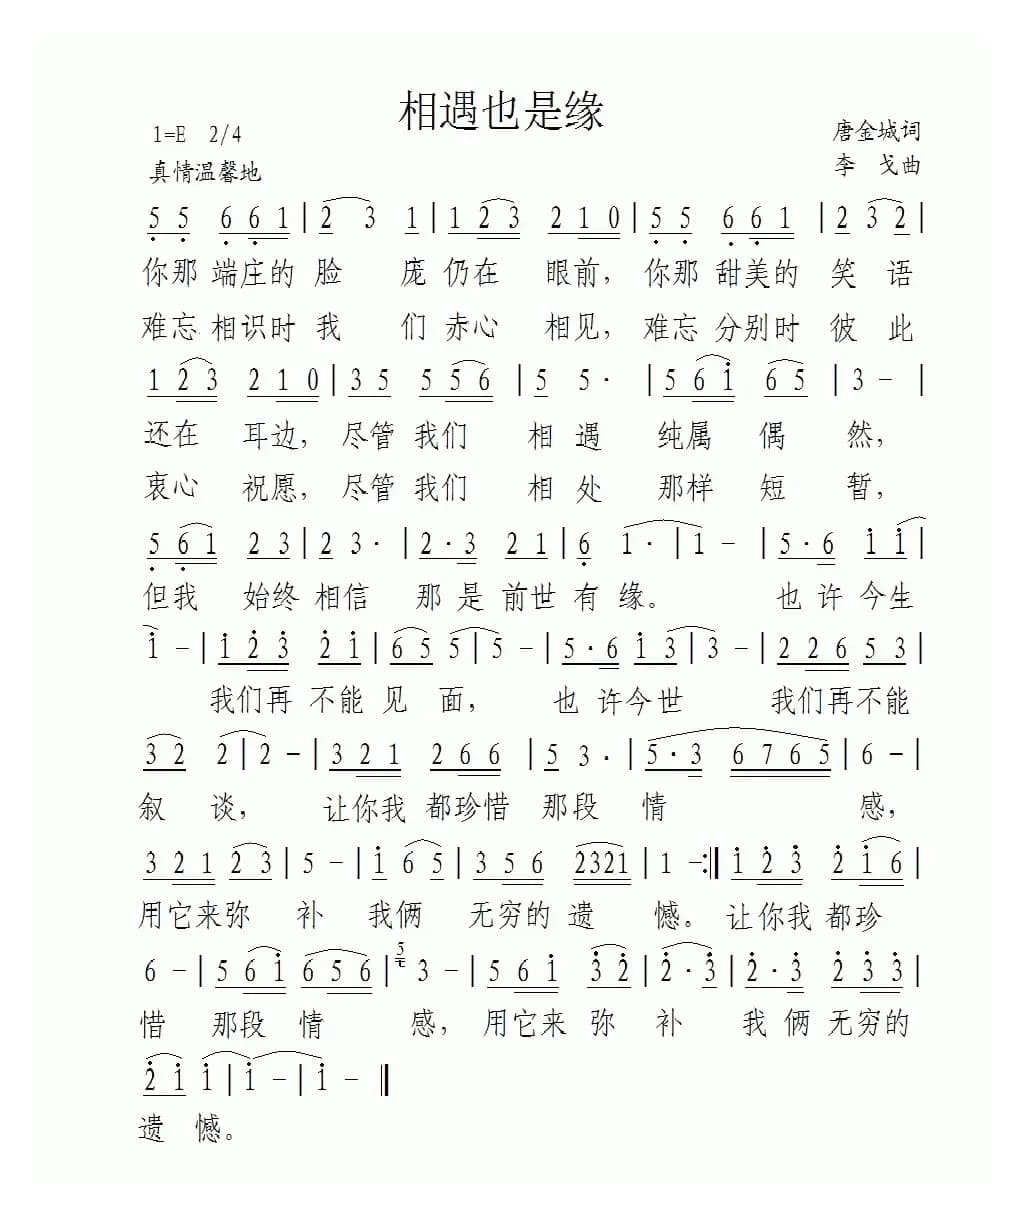 相遇也是缘
1=E 2/4 唐金城词
真情温馨地 李 戈曲
5 5 6 6 1 | 2 3 1 | 1 2 3 2 1 0 | 5 5 6 6 1 | 2 3 2
你那 端庄的 脸 庞 仍在 眼前, 你那 甜美的 笑 语
难忘 相识时 我 们 赤心 相见, 难忘 分别时 彼 此
1 2 3 2 1 0 | 3 5 5 5 6 | 5 5 · | 5 6 i 6 5 | 3 - |
还在 耳边, 尽管 我们 相 遇 纯属 偶 然,
衷心 祝愿, 尽管 我们 相 处 那样 短 暂,
5 6 1 2 3 | 2 3 · | 2 · 3 2 1 | 6 1 · | 1 - | 5 · 6 i i |
但我 始终 相信 那 是 前世 有 缘。 也 许 今生
i - | i 2 3 2 i | 6 5 5 | 5 - | 5 · 6 i 3 | 3 - | 2 2 6 5 3 |
我们再 不能 见 面, 也 许今世 我们再不能
3 2 2 | 2 - | 3 2 1 2 6 6 | 5 3 · | 5 · 3 6 7 6 5 | 6 - |
叙 谈, 让你我 都珍惜 那段 情 感,
3 2 1 2 3 | 5 - | i 6 5 | 3 5 6 2321 | 1 - :‖ i 2 3 2 i 6 |
用它来弥 补 我俩 无穷的 遗 憾。 让你我 都珍
6 - | 5 6 i 6 5 6 | 5 3 - | 5 6 i 3 2 | 2 · 3 | 2 · 3 2 3 3 |
惜 那段 情 感, 用它来 弥 补 我 俩 无穷的
2 i i | i - | i - ‖
遗 憾。